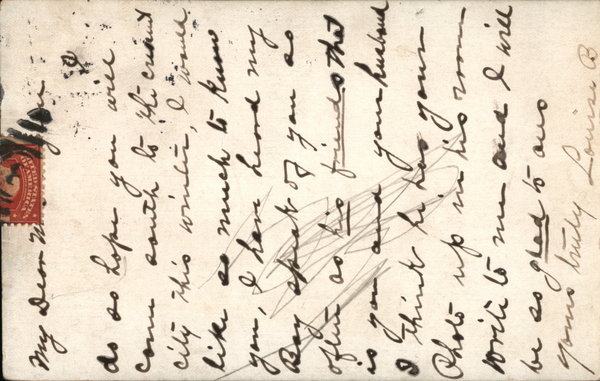 My Dear
do so hope you will
come south to the crescent
city this winter, I would
like so much to know
you, I have heard my
Boy speak of you as
often as his friends that
is you and your husband
I think he has your
Photo up in his room
write to me and I will
be so glad to ans
yours truly Louise B